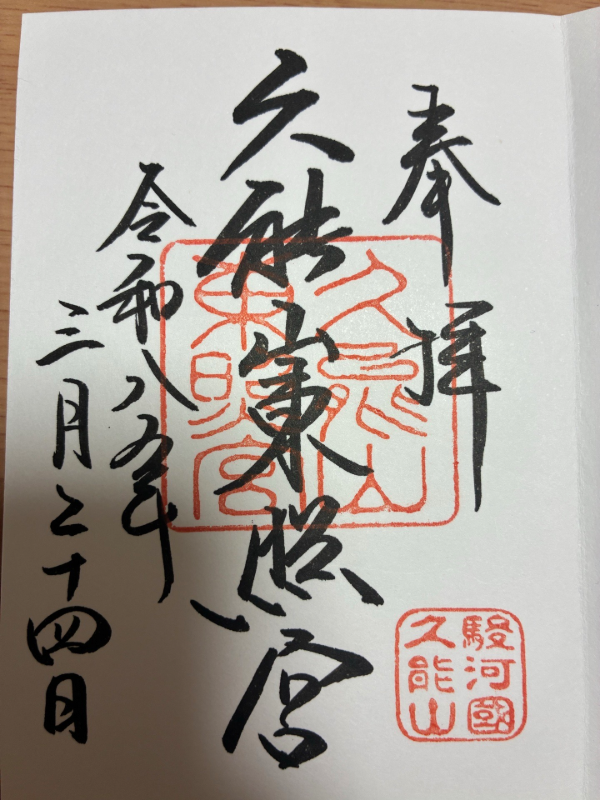 奉拝
久能山東照宮
令和八年
三月二十四日
久能山
東照宮
駿河國
久能山